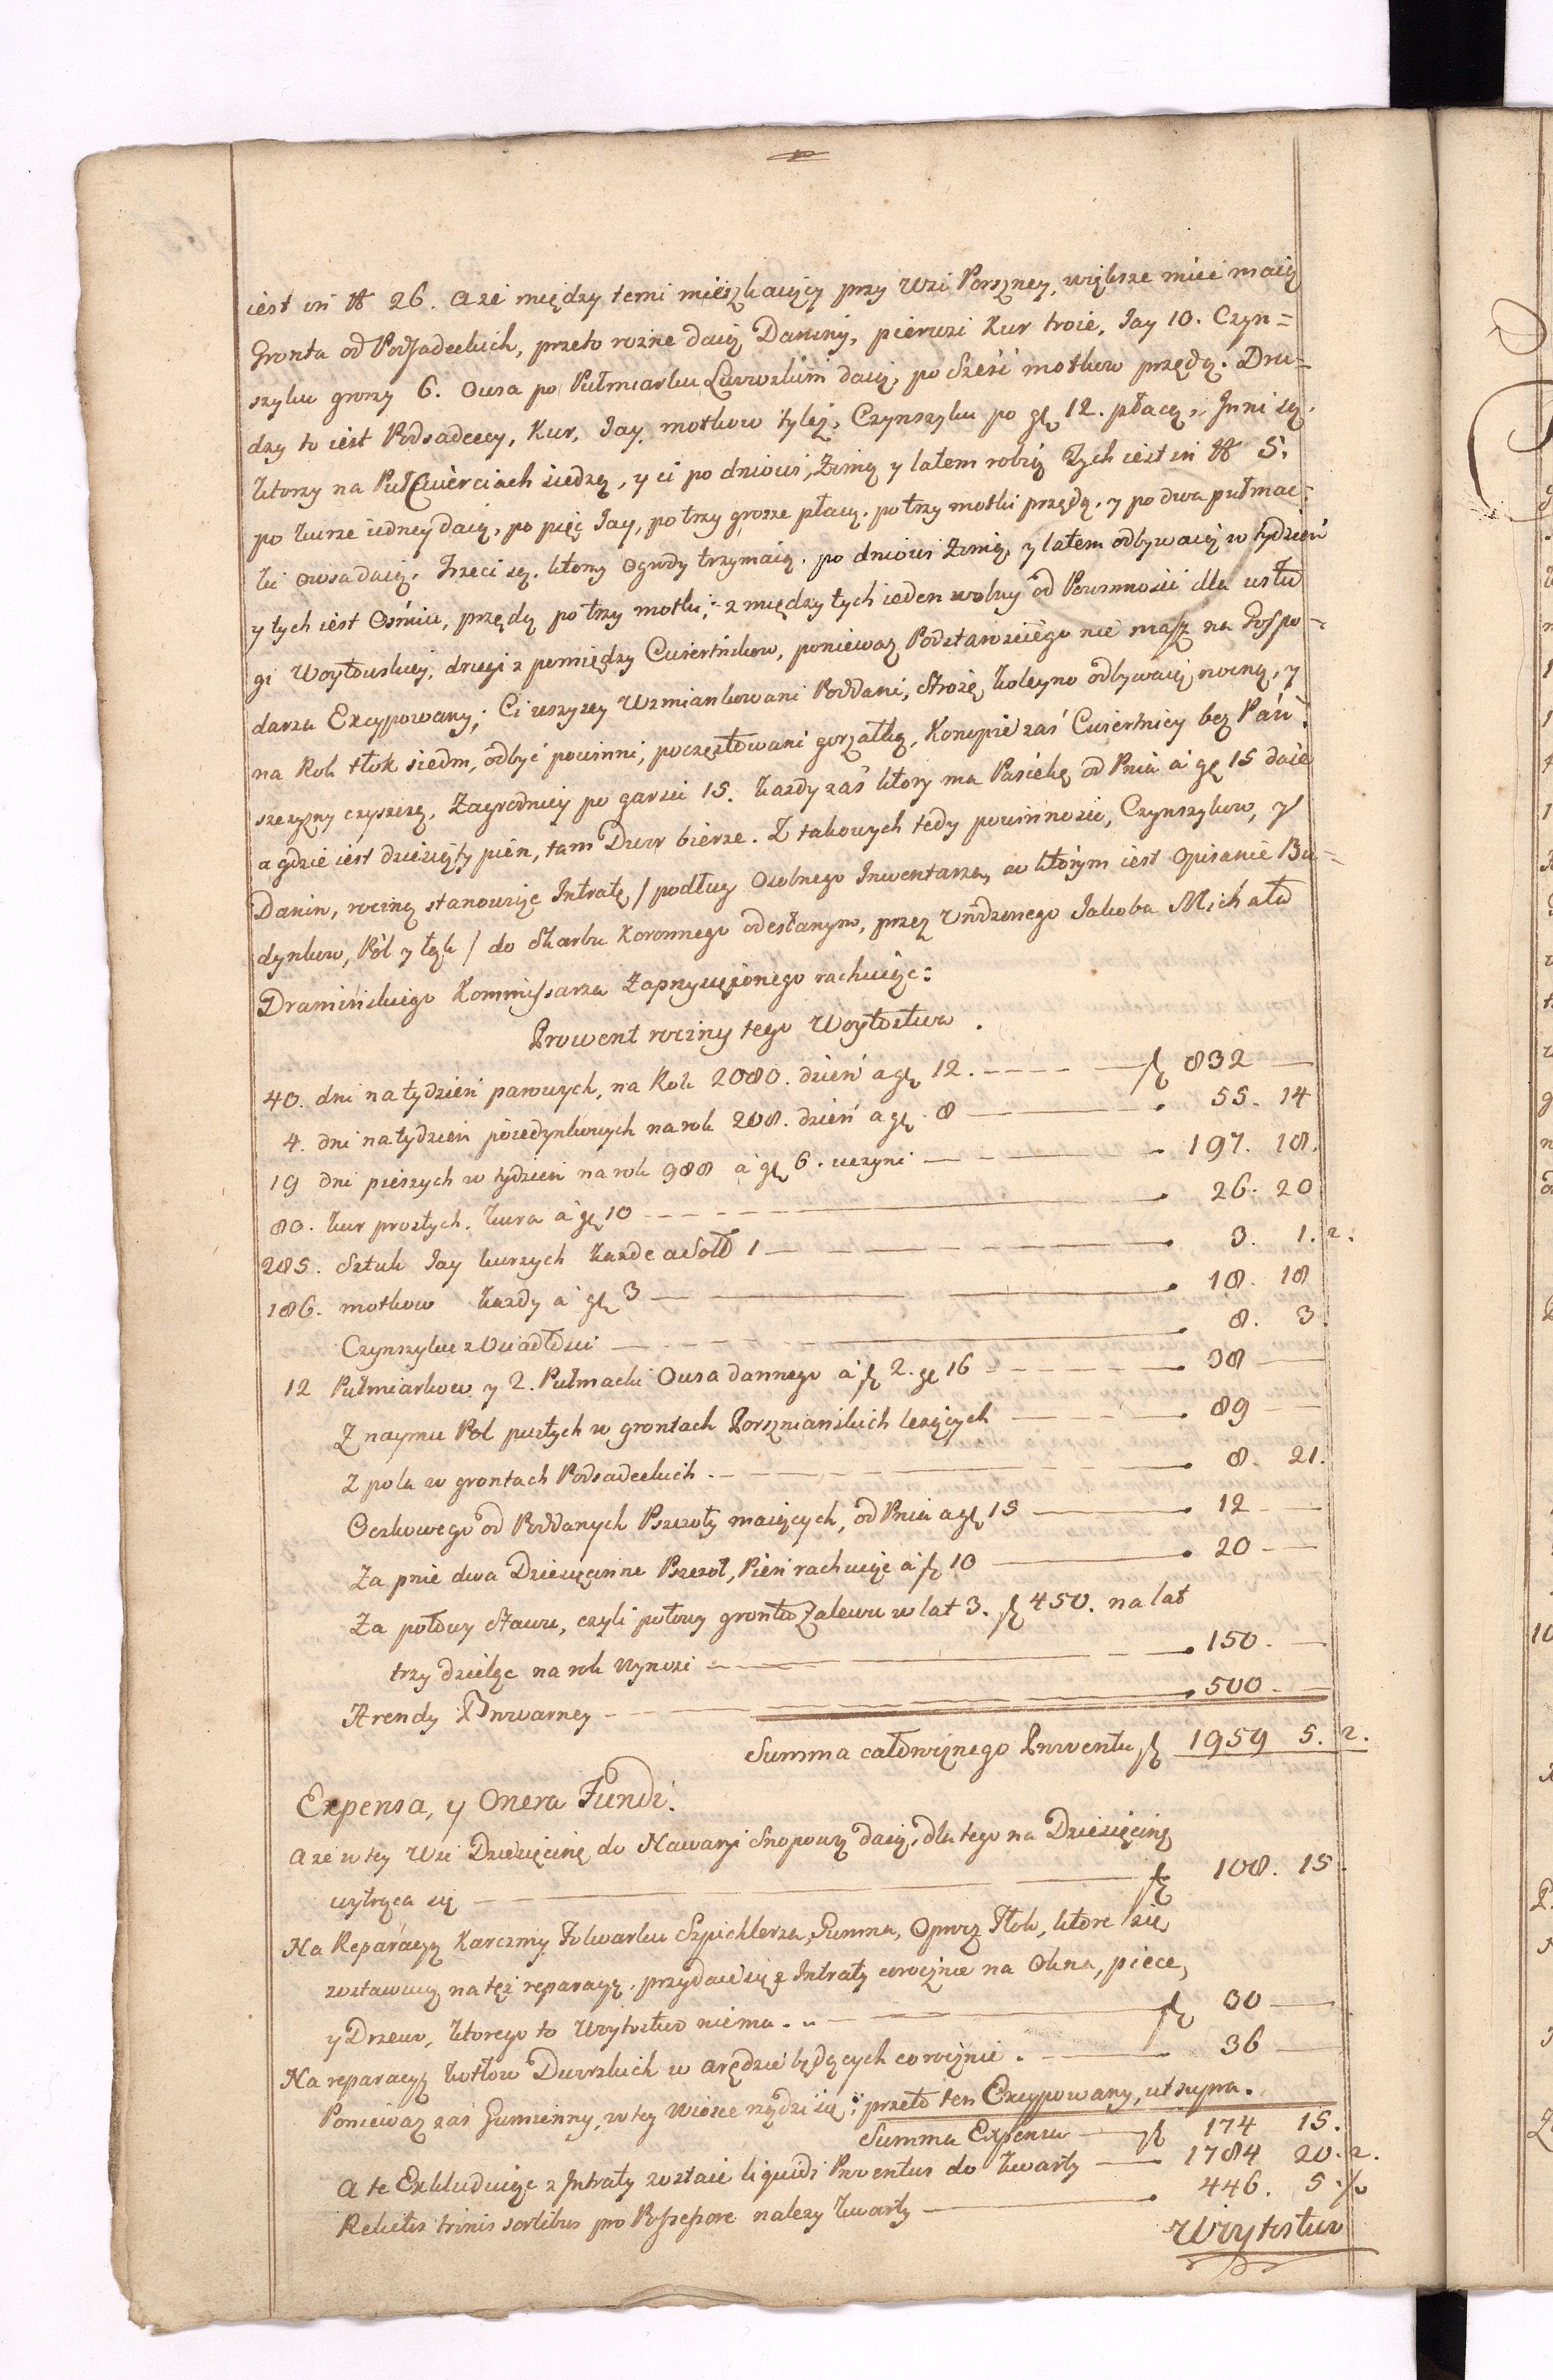 iest in № 26. A że między temi mieszkaiący przy Wsi Porszney, większe nieci maią
Gronta od Podsadeckich, przeto rozne daią Daniny, pierwsi Kur troie, Jay 10. Czyn=
szyku groszy 6. Owsa po Pułmiarku Lwowskim daią, po sześć motkow przędą. Dru=
dzy to iest Podsadeccy, Kur, Jay, motkow tyleż, Czynszyku po gr 12. płacą, Jnni są,
ktorzy na PułCwierciach siedzą, y ci po dniowi, Zimą y latem robią Tych iest in № 5.
po kurze iedney daią, po pięć Jay, po trzy grosze płacą, po trzy motki przędą, y po dwa pułmac=
ki owsa daią. Trzeci są, ktorzy Ogrody trzymaią, po dniowi Zimą, y latem odbywaią w tydzień
y tych iest Ośmiu, przędą po trzy motki; z między tych ieden wolny od Powinności dla usłu
gi Woytowskiey, drugi z pomiędzy Cwiertnikow, ponieważ Podstarościego nie masz na Gospo=
darza Excypowany; Ci wszyscy Wzmiankowani Poddani, Strożę koleyno odbywaią nocną, y
na Rok tłok siedm, odbyć powinni, poczęstowani gorzałką, Konopie zaś Cwiertnicy bez Pań=
szczyzny czyszczą, Zagrodnicy po garści 15. Każdy zaś ktory ma Pasiekę od Pnia à gr 15 daie
a gdzie iest dziesięty pień, tam Dwor bierze. Z takowych tedy powinności, Czynszykow, y
Danin, roczną stanowiąc Intratę / podług Osobnego Inwentarza, w którym iest opisanie Bu=
dynkow, Pól y łąk / do Skarbu Koronnego odesłanym, przez Urodzonego Jakoba Michała
Dramińskiego Kommissarza Zaprzysiężonego rachuiąc:
Prowent roczny tego Woytostwa.
40. dni na tydzień parowych, na Rok 2080. dzień a gr 12. — fl 832 —
4. dni na tydzień poiedynkowych na rok 208. dzień a gr. 8 — 55. 14
19 dni pieszych w tydzień na rok 988 à gr 6. uczyni — 197. 18.
80. kur prostych, kura à gr 10 — 26. 20
285. Sztuk Jay kurzych każde a Sołd 1 — 3. 1. 2.
186. motkow każdy à gr 3 — 18. 18
Czynszyku z Osiadłości — 8. 3.
12 Pułmiarkow y 2. Pułmacki Owsa dannego à fl 2. gr 16 — 38 —
Z naymu Pol pustych w grontach Porszniańskich leżących — 89 —
Z pola w grontach Podsadeckich — 8. 21.
Oczkowego od Poddanych Pszczoły maiących, od Pnia a gr 15 — 12 —
Za pnie dwa Dziesięcinne Pszczoł, Pień rachuiąc à fl 10 — 20 —
Za połowy stawu, czyli połowy grontu Zalewu w lat 3. fl 450. na lat
trzy dzieląc na rok wynosi — 150. —
Arendy Browarney — 500. —
Summa całorocznego Prowentu fl 1959 5. 2.
Expensa, y Onera Fundi.
A że w tey Wsi Dziesięcinę do Nawaryi Snopową daią, dlatego na Dziesięcinę
wytrąca się — fl 108. 15.
Na Reparacyą Karczmy, Folwarku Szpichlerza, Gumna, Oprocz Tłok, ktore się
zostawuią na tęż reparacyą, przydaie się z Intraty corocznie na Okna, piece,
y Drzewo, ktorego to Woytostwo niema. — fl 30 —
Na reparacyą kotłow Dworskich w arędzie będących corocznie. — 36 —
Ponieważ zaś Gumienny, w tey Wiosce rządzi się; przeto ten Excypowany, ut supra.
Summa Expensa — fl 174 15.
A te Exkluduiąc z Intraty zostaie liquidi Proventus do kwarty — 1784 20. 2.
Relictis trinis sortibus pro Possessore należy kwarty — 446. 5.
Woytostwo